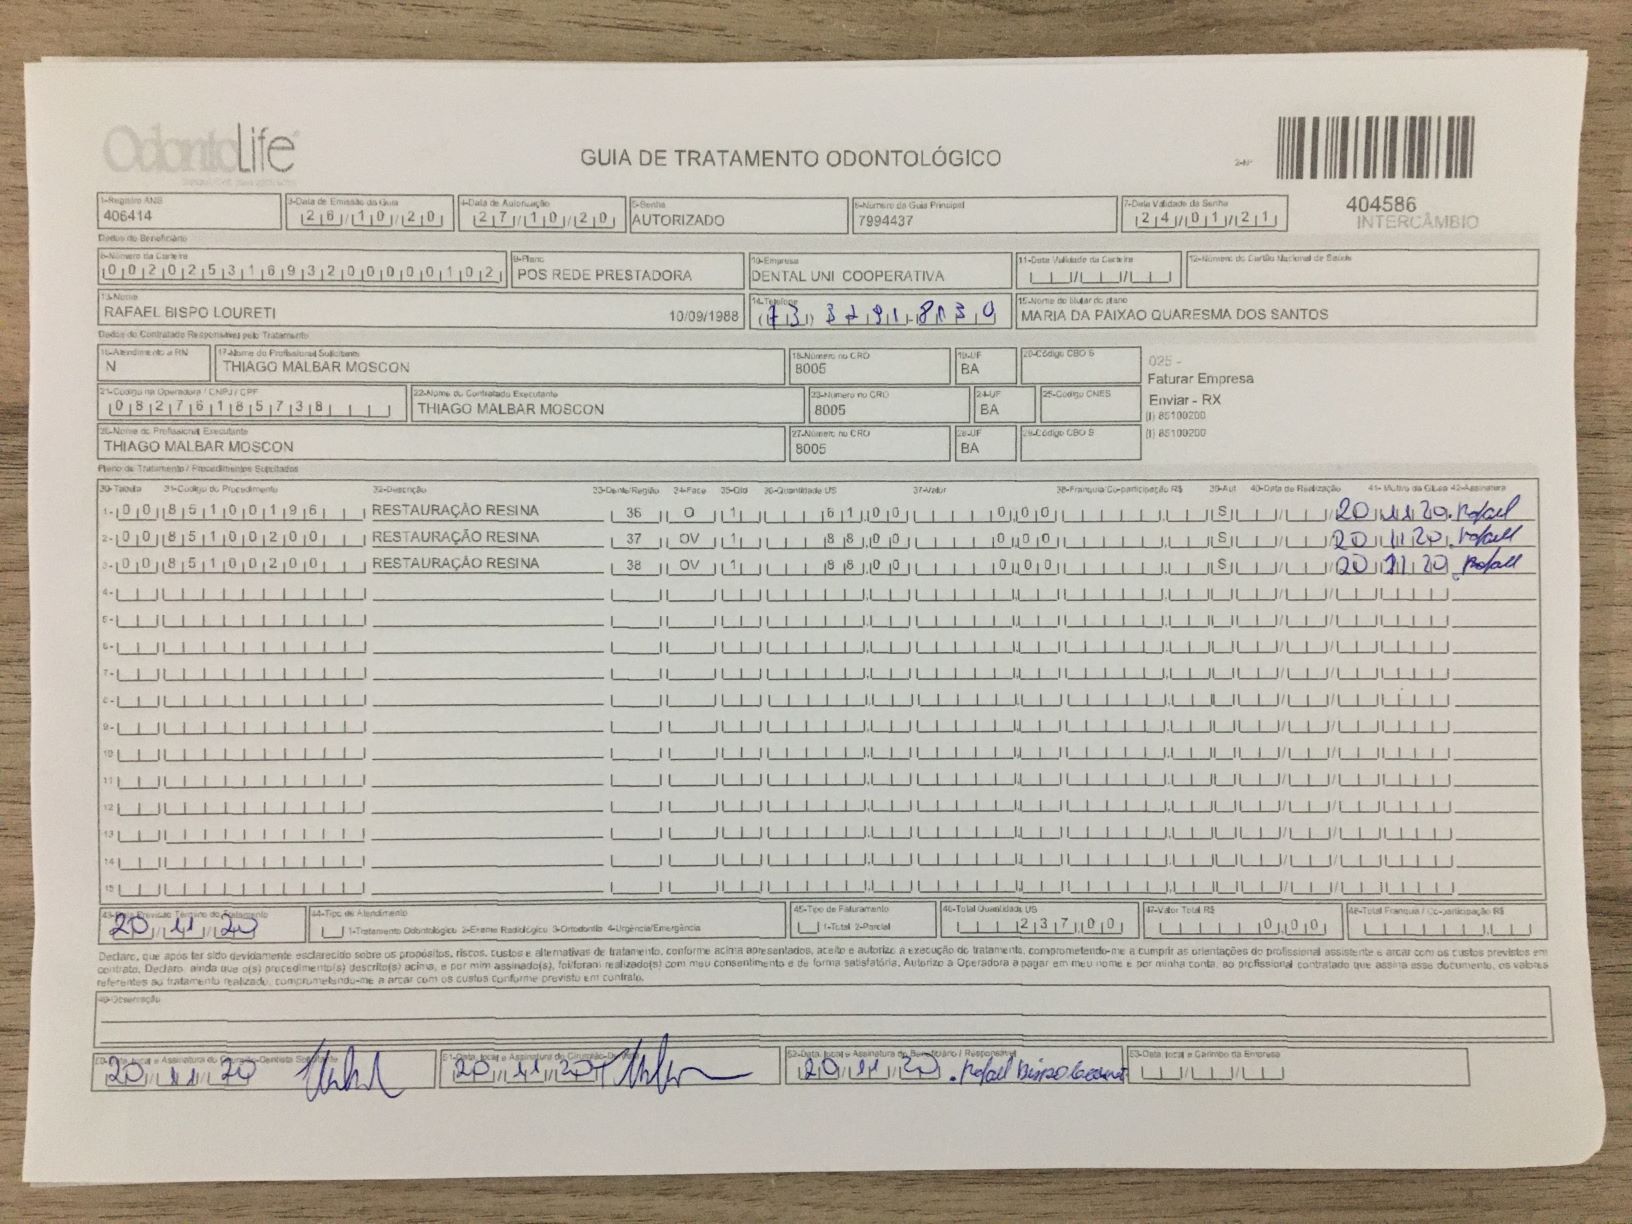 OdontoLife
GUIA DE TRATAMENTO ODONTOLÓGICO
2-Nº
404586
INTERCÂMBIO
1-Registro ANS 3-Data de Emissão da Guia 4-Data de Autorização 5-Senha 6-Número da Guia Principal 7-Data Validade da Senha
406414 26/10/20 27/10/20 AUTORIZADO 7994437 24/01/21
Dados do Beneficiário
8-Número da Carteira 9-Plano 10-Empresa 11-Data Validade da Carteira 12-Número do Cartão Nacional de Saúde
00202531693200000102 POS REDE PRESTADORA DENTAL UNI COOPERATIVA
13-Nome 14-Telefone 15-Nome do titular do plano
RAFAEL BISPO LOURETI 10/09/1988 (73) 3291-8130 MARIA DA PAIXAO QUARESMA DOS SANTOS
Dados do Contratado Responsável pelo Tratamento
16-Atendimento a RN 17-Nome do Profissional Solicitante 18-Número no CRO 19-UF 20-Código CBO S
N THIAGO MALBAR MOSCON 8005 BA
025 -
Faturar Empresa
Enviar - RX
(I) 85100200
(I) 85100200
21-Código na Operadora / CNPJ / CPF 22-Nome do Contratado Executante 23-Número no CRO 24-UF 25-Código CNES
08276185738 THIAGO MALBAR MOSCON 8005 BA
26-Nome do Profissional Executante 27-Número no CRO 28-UF 29-Código CBO S
THIAGO MALBAR MOSCON 8005 BA
Plano de Tratamento / Procedimentos Solicitados
30-Tabela 31-Código do Procedimento 32-Descrição 33-Dente/Região 34-Face 35-Qtd 36-Quantidade US 37-Valor 38-Franquia/Co-participação R$ 39-Aut 40-Data de Realização 41-Motivo da Glosa 42-Assinatura
1- 00 85100196 RESTAURAÇÃO RESINA 36 O 1 61,00 0,00 S 20/11/20 Rafael
2- 00 85100200 RESTAURAÇÃO RESINA 37 OV 1 88,00 0,00 S 20/11/20 Rafaell
3- 00 85100200 RESTAURAÇÃO RESINA 38 OV 1 88,00 0,00 S 20/11/20 Rafaell
4-
5-
6-
7-
8-
9-
10
11
12
13
14
15
43-Data Previsão Término do Tratamento 44-Tipo de Atendimento 45-Tipo de Faturamento 46-Total Quantidade US 47-Valor Total R$ 48-Total Franquia / Co-participação R$
20/11/20 1-Tratamento Odontológico 2-Exame Radiológico 3-Ortodontia 4-Urgência/Emergência 1-Total 2-Parcial 237,00 0,00
Declaro, que após ter sido devidamente esclarecido sobre os propósitos, riscos, custos e alternativas de tratamento, conforme acima apresentados, aceito e autorizo a execução do tratamento, comprometendo-me a cumprir as orientações do profissional assistente e arcar com os custos previstos em
contrato. Declaro, ainda que o(s) procedimento(s) descrito(s) acima, e por mim assinado(s), foi/foram realizado(s) com meu consentimento e de forma satisfatória. Autorizo a Operadora a pagar em meu nome e por minha conta, ao profissional contratado que assina esse documento, os valores
referentes ao tratamento realizado, comprometendo-me a arcar com os custos conforme previsto em contrato.
49-Observação
50-Data, local e Assinatura do Cirurgião-Dentista Solicitante 51-Data, local e Assinatura do Cirurgião-Dentista 52-Data, local e Assinatura do Beneficiário / Responsável 53-Data, local e Carimbo da Empresa
20/11/20 20/11/20 20/11/20 Rafael Bispo